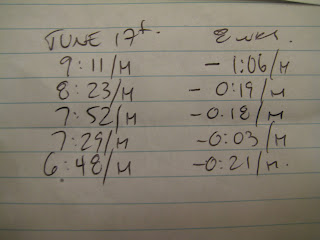 JUNE 17th. 8 wks.
9:11/M - 1:06/M
8:23/M - 0:19/M
7:52/M -0.18/M
7:29/M -0:03/M
6:48/M -0:21/M.